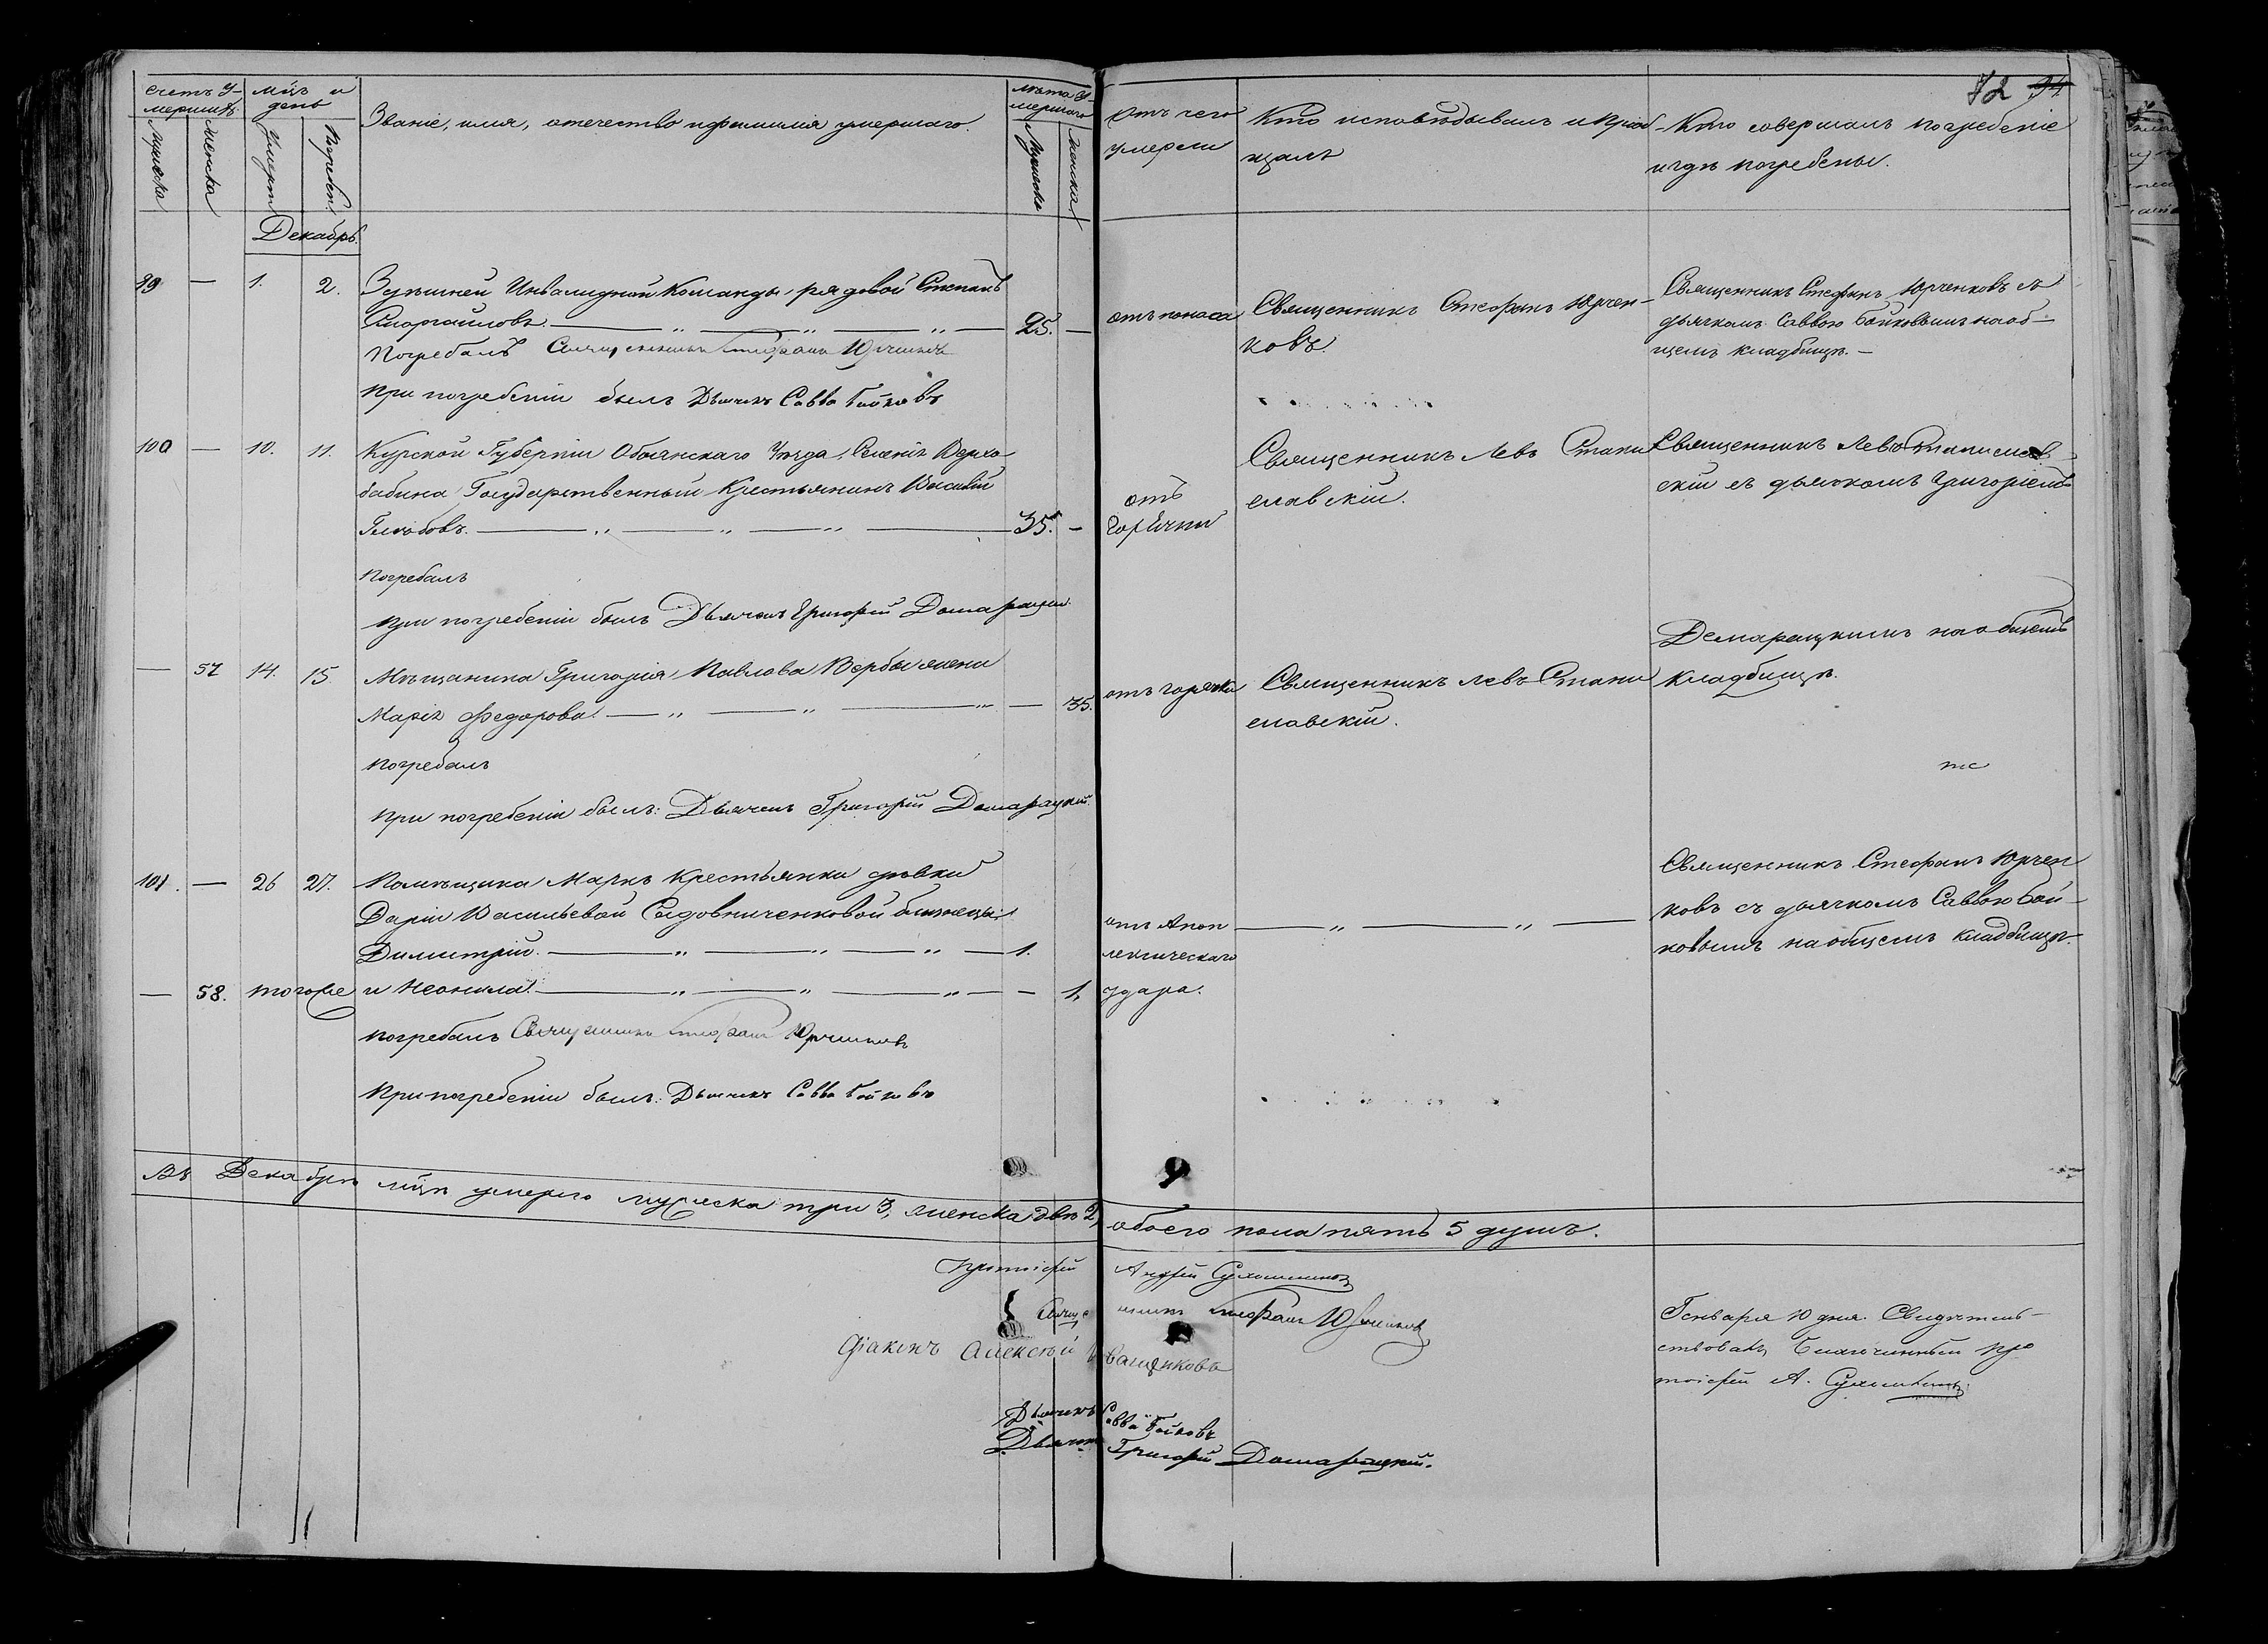 72 94
Счетъ у-
мершихъ.
Мужска
Женска
М͠цъ и
день
Умерт
Погребен.
Званіе, имя, отечество и фамилія умершаго.
Лѣта у-
мершаго
Мужска
Женска
Отъ чего
умерли
Кто исповѣдывалъ и пріоб-
щалъ
Кто совершалъ погребеніе
и гдѣ погребены.
Декабрь.
99 — 1. 2. Инвалидной Команды, рядовой Степанъ
25. —
отъ поноса
Священникъ Стефанъ Юрчен-
ковъ.
Священникъ Стефанъ Юрченковъ съ
дьячкомъ Саввою Бойковымъ на об-
щемъ кладбищѣ. —
погребалъ Священникъ Стефанъ Юрченковъ
при погребеніи былъ Дьячекъ Савва Бойковъ
100 — 10. 11. Курской Губерніи Обоянскаго Уѣзда, Селенія Верхо-
бабина Государственный Крестьянинъ Василій
Глѣбовъ. 35. —
отъ
горячки
Священникъ Левъ Стани
славскій.
Священникъ Левъ Станислав-
скій съ дьячкомъ Григоріемъ
погребалъ
при погребеніи былъ Дьячекъ Григорій Домарацкій.
Демарацкимъ на общемъ
кладбищѣ.
— 57 14. 15. Мѣщанина Григорія Павлова Вербы жена
Марія Федорова. — 35.
отъ горячки
Священникъ Левъ Стани
славскій.
погребалъ
при погребеніи былъ: Дьячекъ Григорій Домарацкій.
101. — 26 27. Помѣщика Маркъ крестьянки дѣвки
Даріи Васильевой Садовниченковой близнецы:
Димитрій. 1.
— 58. тогоже и Неонила. — 1.
отъ Апоп
лексическаго
удара.
Священникъ Стефанъ Юрчен
ковъ съ дьячкомъ Саввою Бой-
ковымъ на общемъ кладбищѣ.
погребалъ Священникъ Стефанъ Юрченковъ
При погребеніи былъ: Дьячекъ Савва Бойковъ
Въ Декабрѣ м͠цѣ умерло мужеска три 3, женска двѣ 2, обоего пола пять 5 душъ.
Протоіерей Андрей
Священникъ Стефанъ Юрченковъ
Діаконъ Алексѣй Иващенковъ
Дьячекъ Савва Бойковъ
Дьячекъ Григорій Домарацкій.
Генваря 10 дня. Свидѣтель-
ствовалъ Благочинный про
тоіерей А.